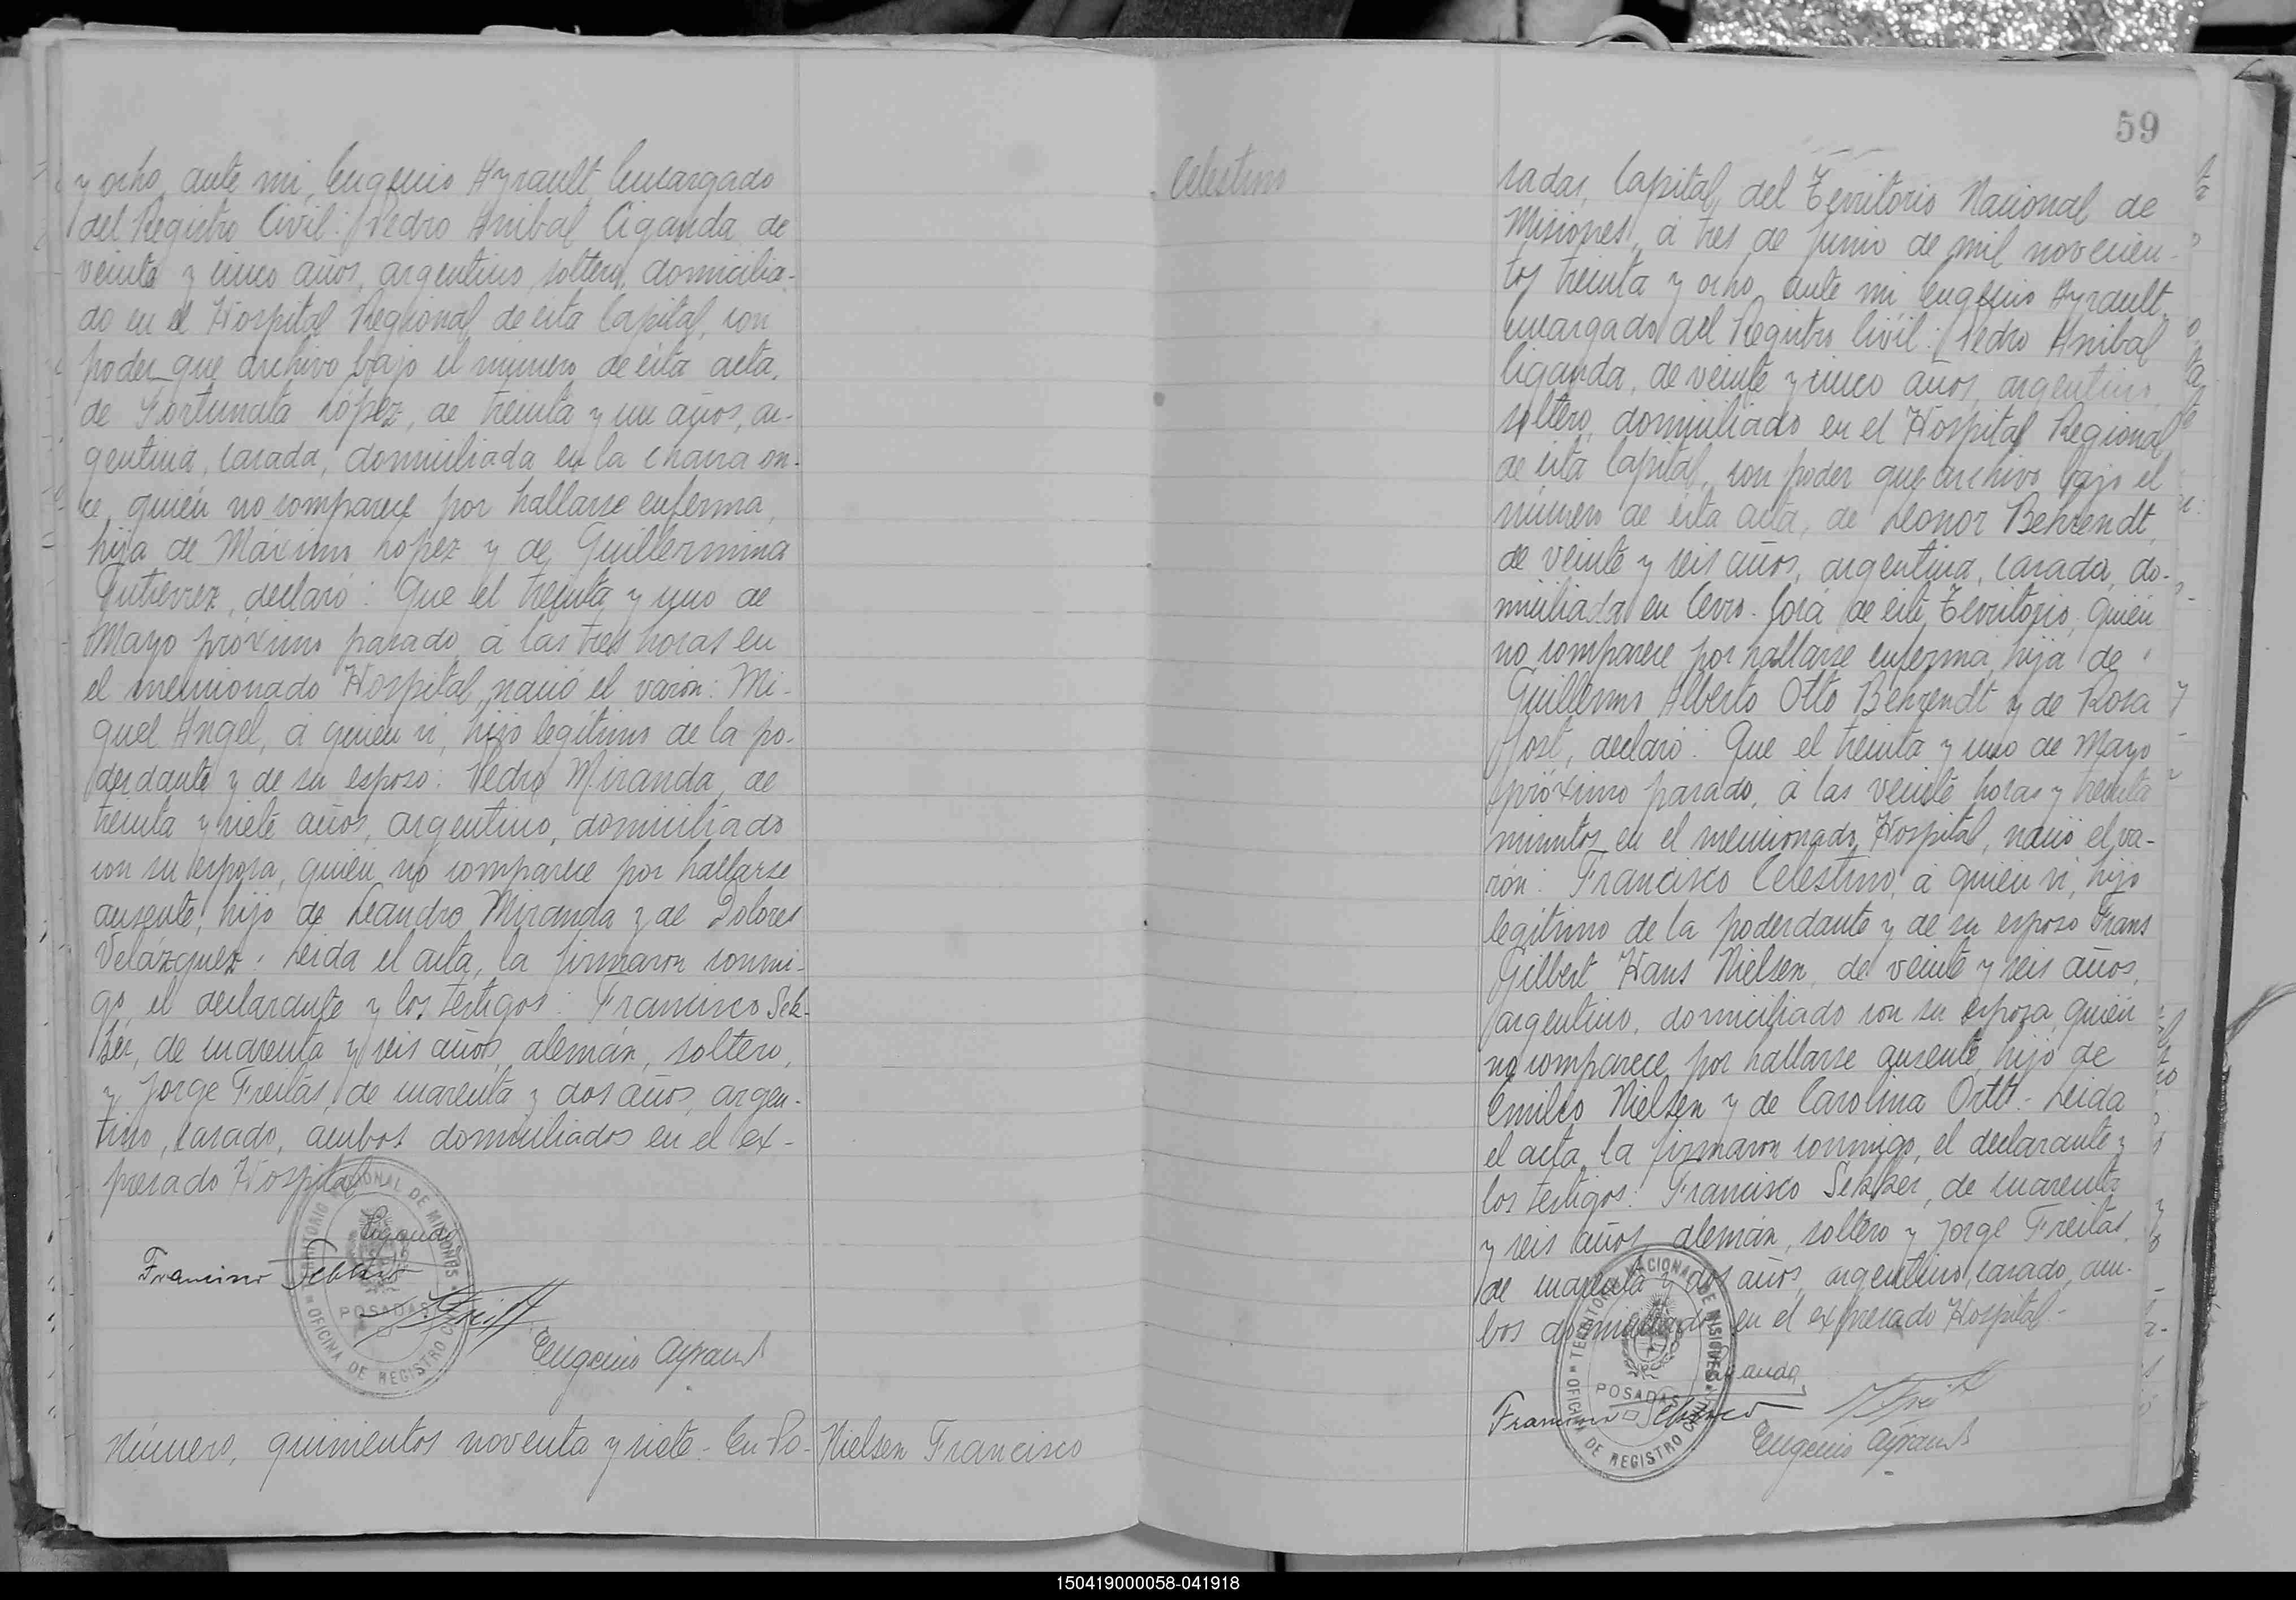 y ocho, ante mi, Eugenio Ayrault, Encargado
del Registro Civil: Pedro Anibal Ciganda, de
veinte y cinco años, argentino, soltero, domicilia-
do en el Hospital Regional de esta Capital, con
poder que archivo bajo el número de ésta acta,
de Fortunata López, de treinta y un años, ar-
gentina, casada, domiciliada en la chacra on-
ce, quién no comparece por hallarse enferma,
hija de Máximo Lopez y de Guillermina
Gutierrez, declaró: Que el treinta y uno de
Mayo próximo pasado, á las tres horas en
el mencionado Hospital, nació el varón: Mi-
guel Angel, á quien vi, hijo legitimo de la po-
derdante y de su esposo: Pedro Miranda, de
treinta y siete años, argentino, domiciliado
con su esposa, quién no comparece por hallarse
ausente, hijo de Leandro Miranda y de Dolores
Velázquez. Leida el acta, la firmaron conmi-
go, el declarante y los testigos: Francisco Sek-
ker, de cuarenta y seis años, alemán, soltero,
y Jorge Freitas, de cuarenta y dos años, argen-
tino, casado, ambos domiciliados en el ex-
presado Hospital
Ciganda
Francisco
TERRITORIO NACIONAL DE MISIONES
POSADAS
OFICINA DE REGISTRO CIVIL
Eugenio Ayrault
Número, quinientos noventa y siete - En Po-
Nielsen Francisco
Celestino
59
sadas, Capital del Territorio Nacional de
Misiones, á tres de Junio de mil novecien-
tos treinta y ocho, ante mi Eugenio Ayrault,
encargado del Registro Civil: Pedro Anibal
Ciganda, de veinte y cinco años, argentino,
soltero, domiciliado en el Hospital Regional
de esta Capital, con poder que archivo bajo el
número de ésta acta, de Leonor Behrendt,
de veinte y seis años, argentina, casada, do-
miciliada en Cerro-Corá de éste Territorio, quién
no comparece por hallarse enferma, hija de
Guillermo Alberto Otto Behrendt y de Rosa
Jost, declaró: Que el treinta y uno de Mayo
próximo pasado, á las veinte horas y treinta
minutos en el mencionado Hospital, nació el va-
rón: Francisco Celestino, á quién vi, hijo
legitimo de la poderdante y de su esposo Frans
Gilbert Hans Nielsen, de veinte y seis años,
argentino, domiciliado con su esposa, quién
no comparece por hallarse ausente, hijo de
Emilio Nielsen y de Carolina Ortt. Leida
el acta, la firmaron conmigo, el declarante y
los testigos: Francisco Sekker, de cuarenta
y seis años, alemán, soltero y Jorge Freitas,
de cuarenta y dos años, argentino, casado, am-
bos domiciliados en el expresado Hospital-
Ciganda
Francisco
TERRITORIO NACIONAL DE MISIONES
POSADAS
OFICINA DE REGISTRO CIVIL
Eugenio Ayrault
150419000058-041918